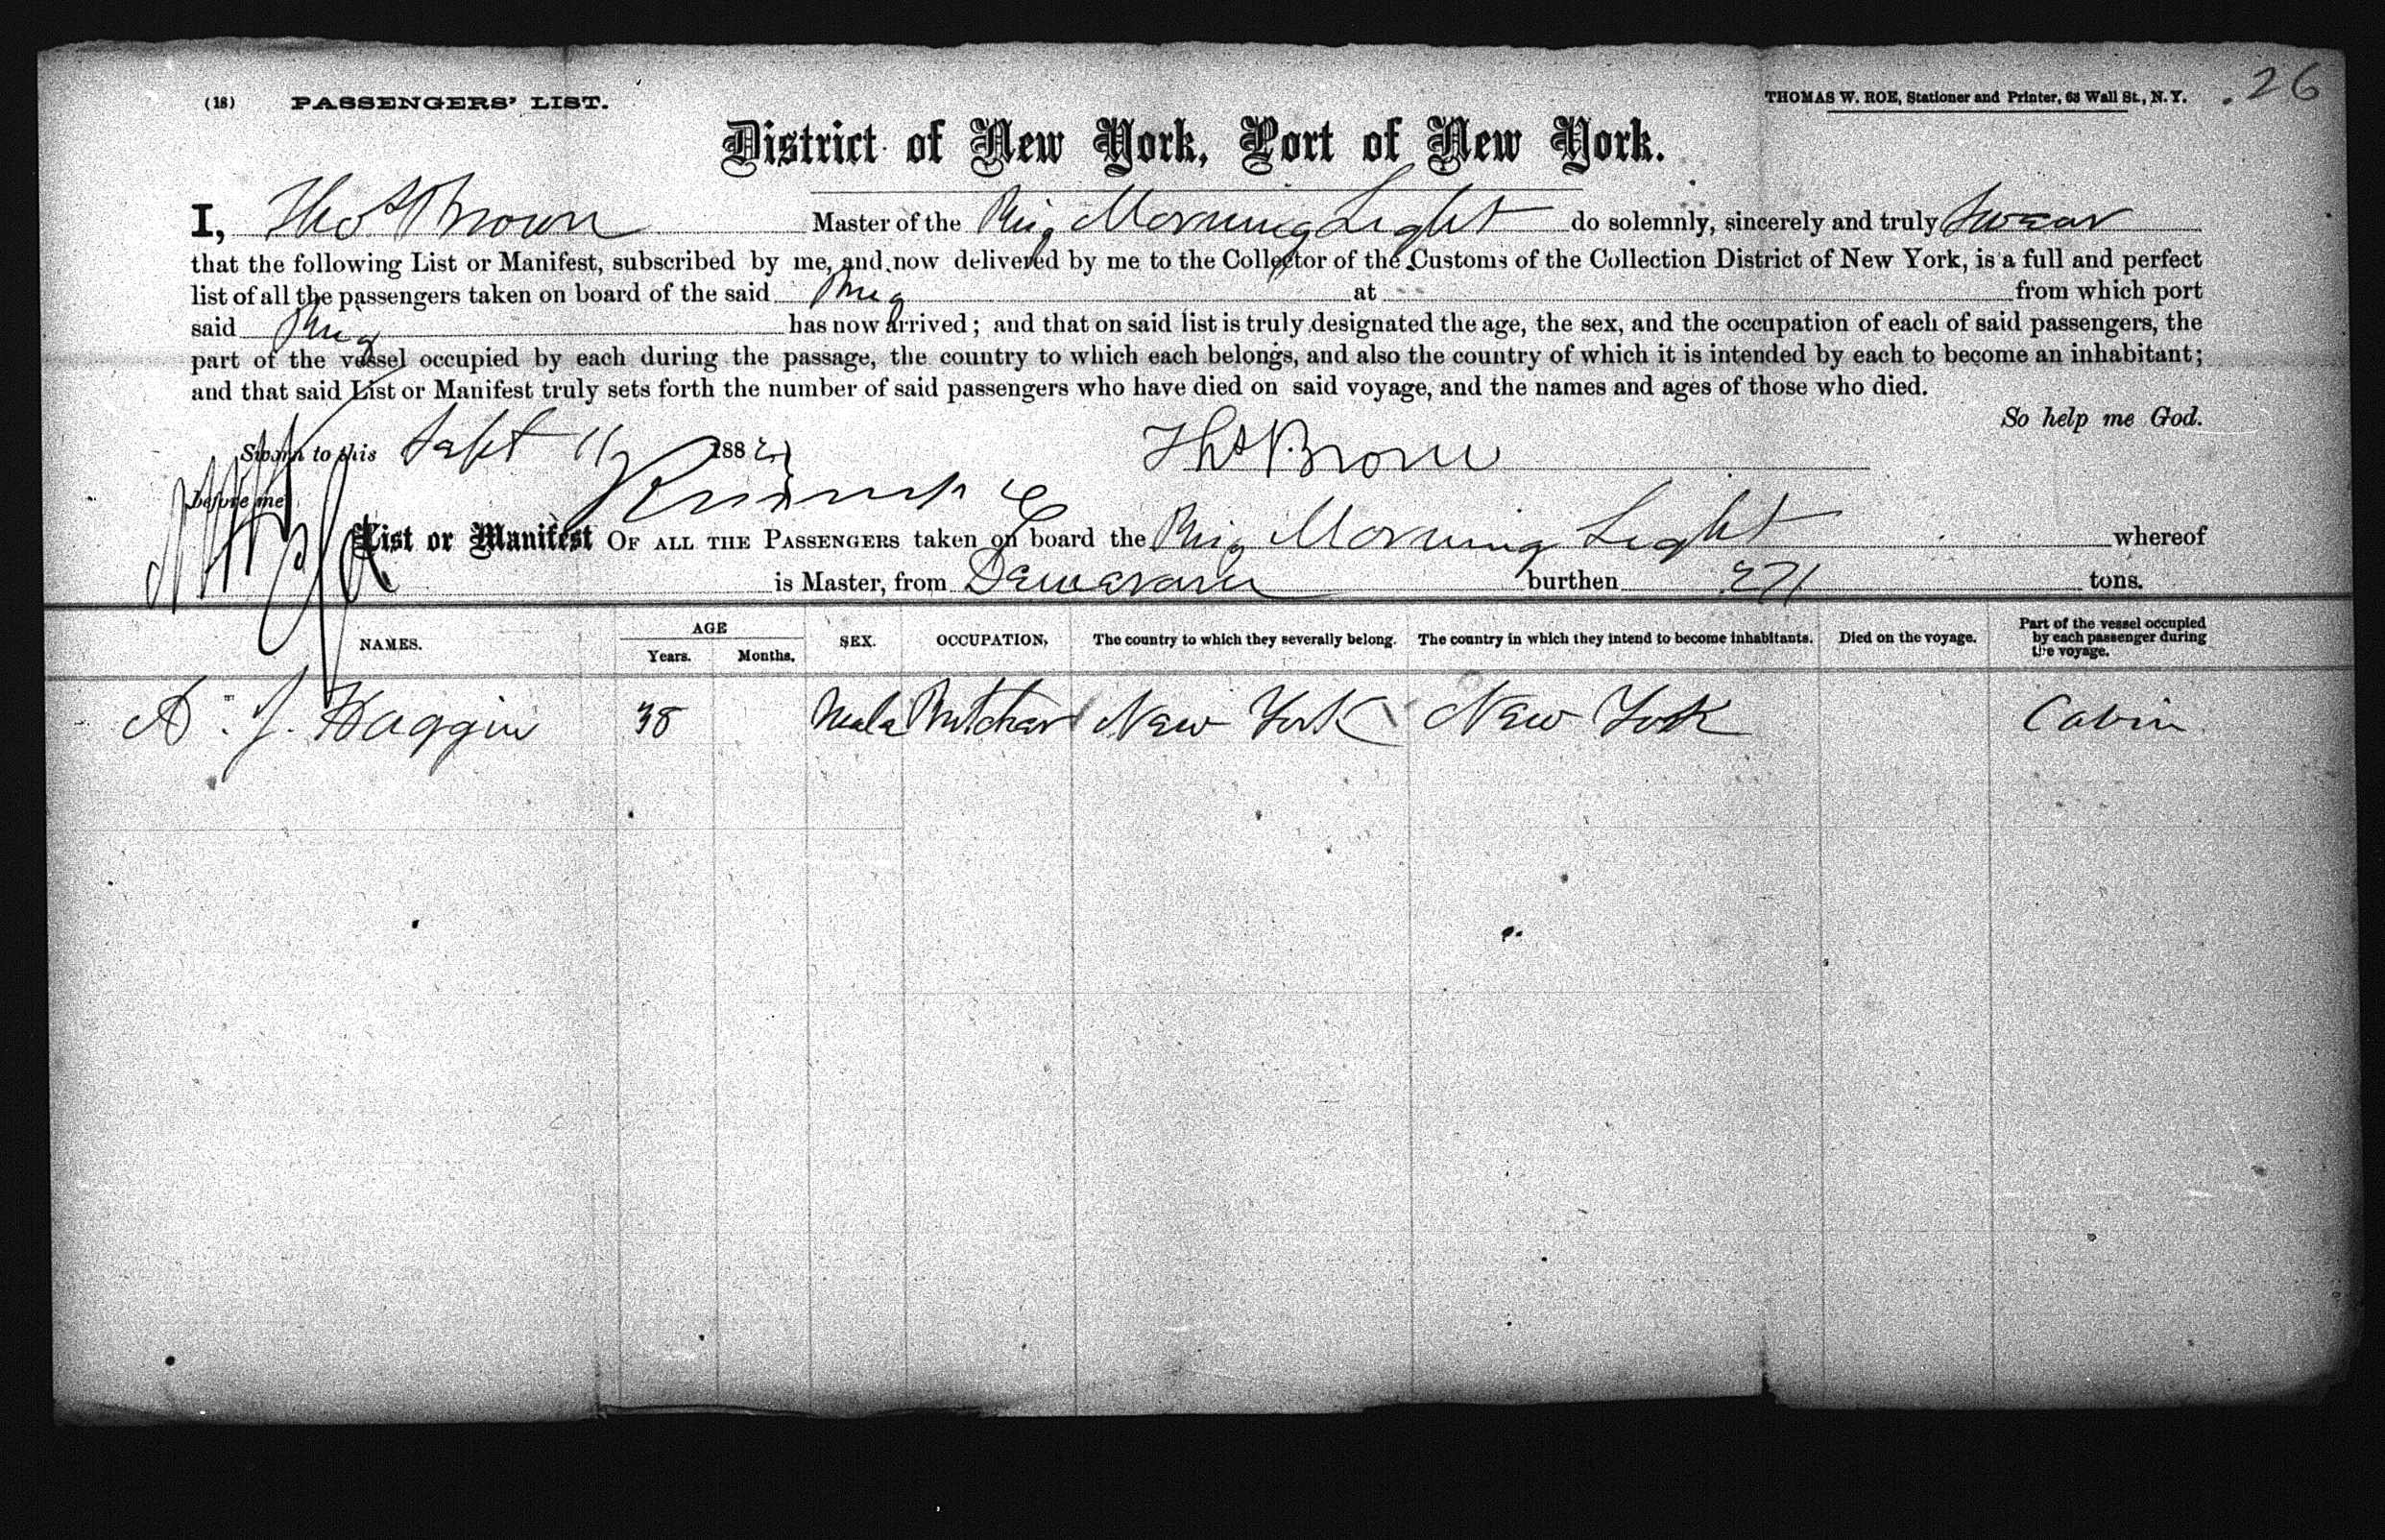 (18) PASSENGERS' LIST.
THOMAS W. ROE, Stationer and Printer, 63 Wall St., N.Y.
.26
District of New York, Port of New York.
I, Thos Brown Master of the Brig Morning Light do solemnly, sincerely and truly swear
that the following List or Manifest, subscribed by me, and now delivered by me to the Collector of the Customs of the Collection District of New York, is a full and perfect
list of all the passengers taken on board of the said Brig at from which port
said Brig has now arrived; and that on said list is truly designated the age, the sex, and the occupation of each of said passengers, the
part of the vessel occupied by each during the passage, the country to which each belongs, and also the country of which it is intended by each to become an inhabitant;
and that said List or Manifest truly sets forth the number of said passengers who have died on said voyage, and the names and ages of those who died.
So help me God.
Sworn to this Sept 11 188
Thos Brown
before me
List or Manifest OF ALL THE PASSENGERS taken on board the Brig Morning Light whereof
is Master, from Demerara burthen 271 tons.
NAMES. AGE Years. Months. SEX. OCCUPATION, The country to which they severally belong. The country in which they intend to become inhabitants. Died on the voyage. Part of the vessel occupied by each passenger during the voyage.
A. J. Haggin 38 Male Butcher New York New York Cabin